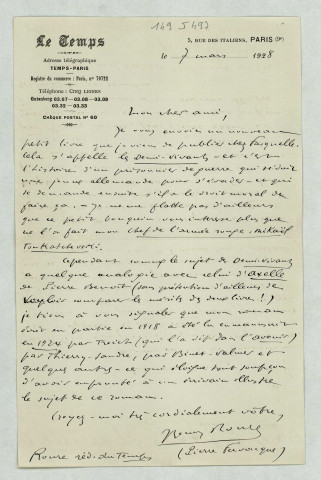 149 5497
Le Temps
5, RUE DES ITALIENS, PARIS (9e)
le 7 mars 1928
Adresse télégraphique
TEMPS-PARIS
Registre du commerce : Paris, n° 70722
Téléphone : CINQ LIGNES
Gutenberg 03.07 — 03.08 — 03.09
03.32 — 03.33
CHÈQUE POSTAL N° 60
Mon cher ami,
Je vous envoie un nouveau
petit livre que je viens de publier chez Fasquelle.
Cela s'appelle les Demi-Vivants et c'est
l'histoire d'un prisonnier de guerre qui séduit
une jeune allemande pour s'évader - et qui
se demande ensuite s'il a le droit moral de
faire ça. - Je ne me flatte pas d'ailleurs
que ce petit bouquin vous intéresse plus que
ne l'a fait mon chef de l'armée rouge, Mikaïl
Toukatchevski.
Cependant comme le sujet de Demi-Vivants
a quelque analogie avec celui d'Axelle
de Pierre Benoit (sans prétention d'ailleurs de
vouloir comparer le mérite des deux livres !)
je tiens à vous signaler que mon roman
écrit en partie en 1918 a été lu en manuscrit
en 1924 par Treich (qui l'a dit dans l'avenir)
par Thierry-Sandre, par Binet-Valmer et
quelques autres - ce qui éloigne tout soupçon
d'avoir emprunté à un écrivain illustre
le sujet de ce roman.
Croyez-moi très cordialement vôtre,
Remy Roure
(Pierre Fervacque)
Roure réd. du Temps